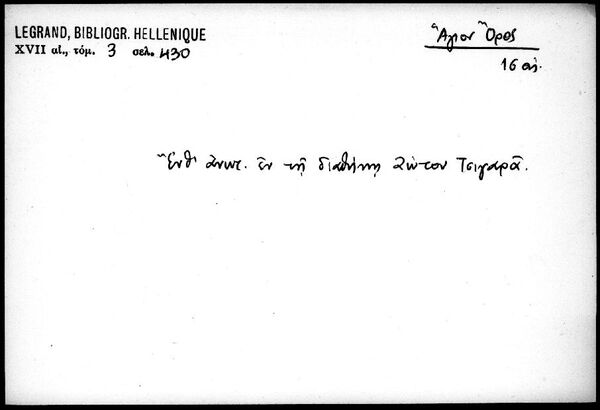 LEGRAND, BIBLIOGR. HELLENIQUE
XVII αἰ., τόμ. 3 σελ. 430
Ἅγιον Ὄρος
16 αἰ.
Ἔνθ' ἀνωτ. ἐν τῇ διαθήκῃ Ζώτου Τσιγαρᾶ.